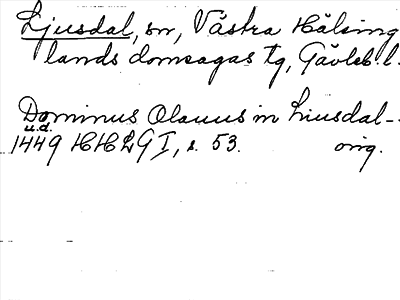 Ljusdal, sn, Västra Hälsing
lands domsagas tg, Gävleb. l.
Dominus Olauus in Liusdal -
u.d.
1449 HHLG I, s. 53. orig.